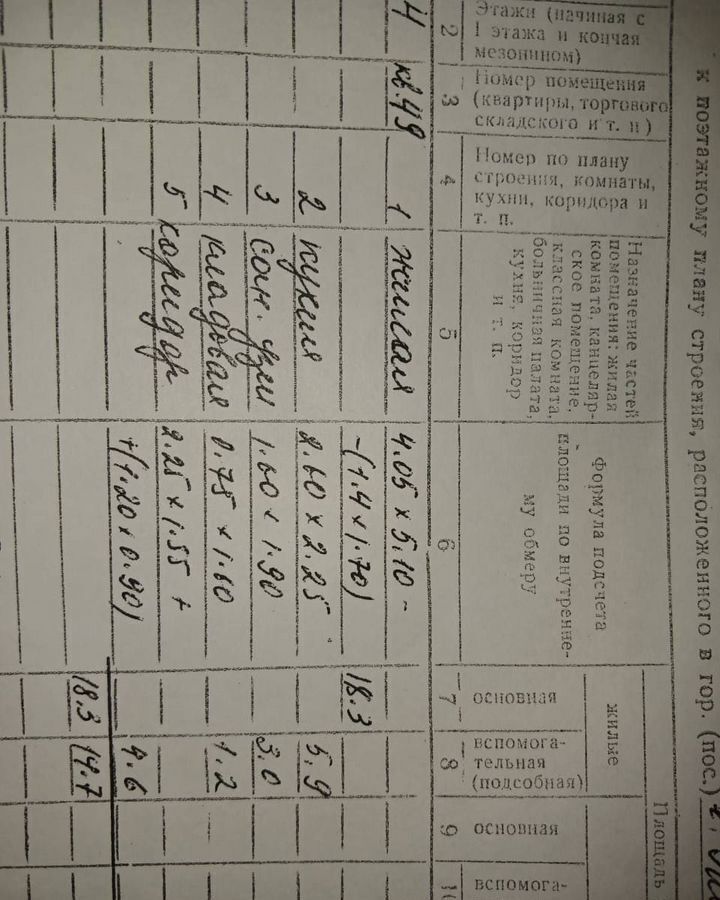 к поэтажному плану строения, расположенного в гор. (пос.)
Площадь
Этажи (начиная с
1 этажа и кончая
мезонином)
Номер помещения
(квартиры, торгового
складского и т. п)
Номер по плану
строения, комнаты,
кухни, коридора и
т. п.
Назначение частей
помещения: жилая
комната, канцеляр-
ское помещение,
классная комната,
больничная палата,
кухня, коридор
и т. п.
Формула подсчета
площади по внутренне-
му обмеру
жилые
основная
вспомога-
тельная
(подсобная)
основная
вспомога-
2 3 4 5 6 7 8 9 10
4 кв.49 1 жилая 4.05 × 5.10 -
-(1.4 × 1.70) 18.3
2 кухня 2.60 × 2.25 5.9
3 сан. узел 1.60 × 1.90 3.0
4 кладовая 0.75 × 1.60 1.2
5 коридор 2.25 × 1.55 +
+(1.20 × 0.90) 4.6
18.3 14.7